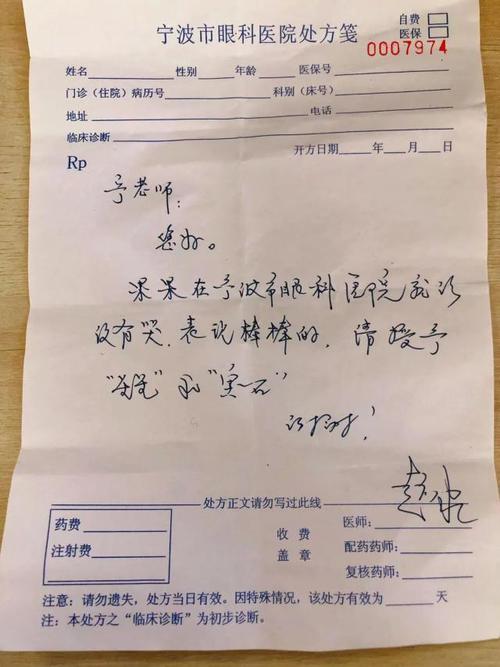 宁波市眼科医院处方笺
自费
医保
0007974
姓名 性别 年龄 医保号
门诊（住院）病历号 科别（床号）
地址 电话
临床诊断
Rp 开方日期 年 月 日
老师：
您好。
果果在宁波市眼科医院就诊
没有哭，表现棒棒的，请授予
处方正文请勿写过此线
药费
注射费
收费
盖章
医师：
配药药师：
复核药师：
注意：请勿遗失，处方当日有效。因特殊情况，该处方有效为 天
注：本处方之“临床诊断”为初步诊断。